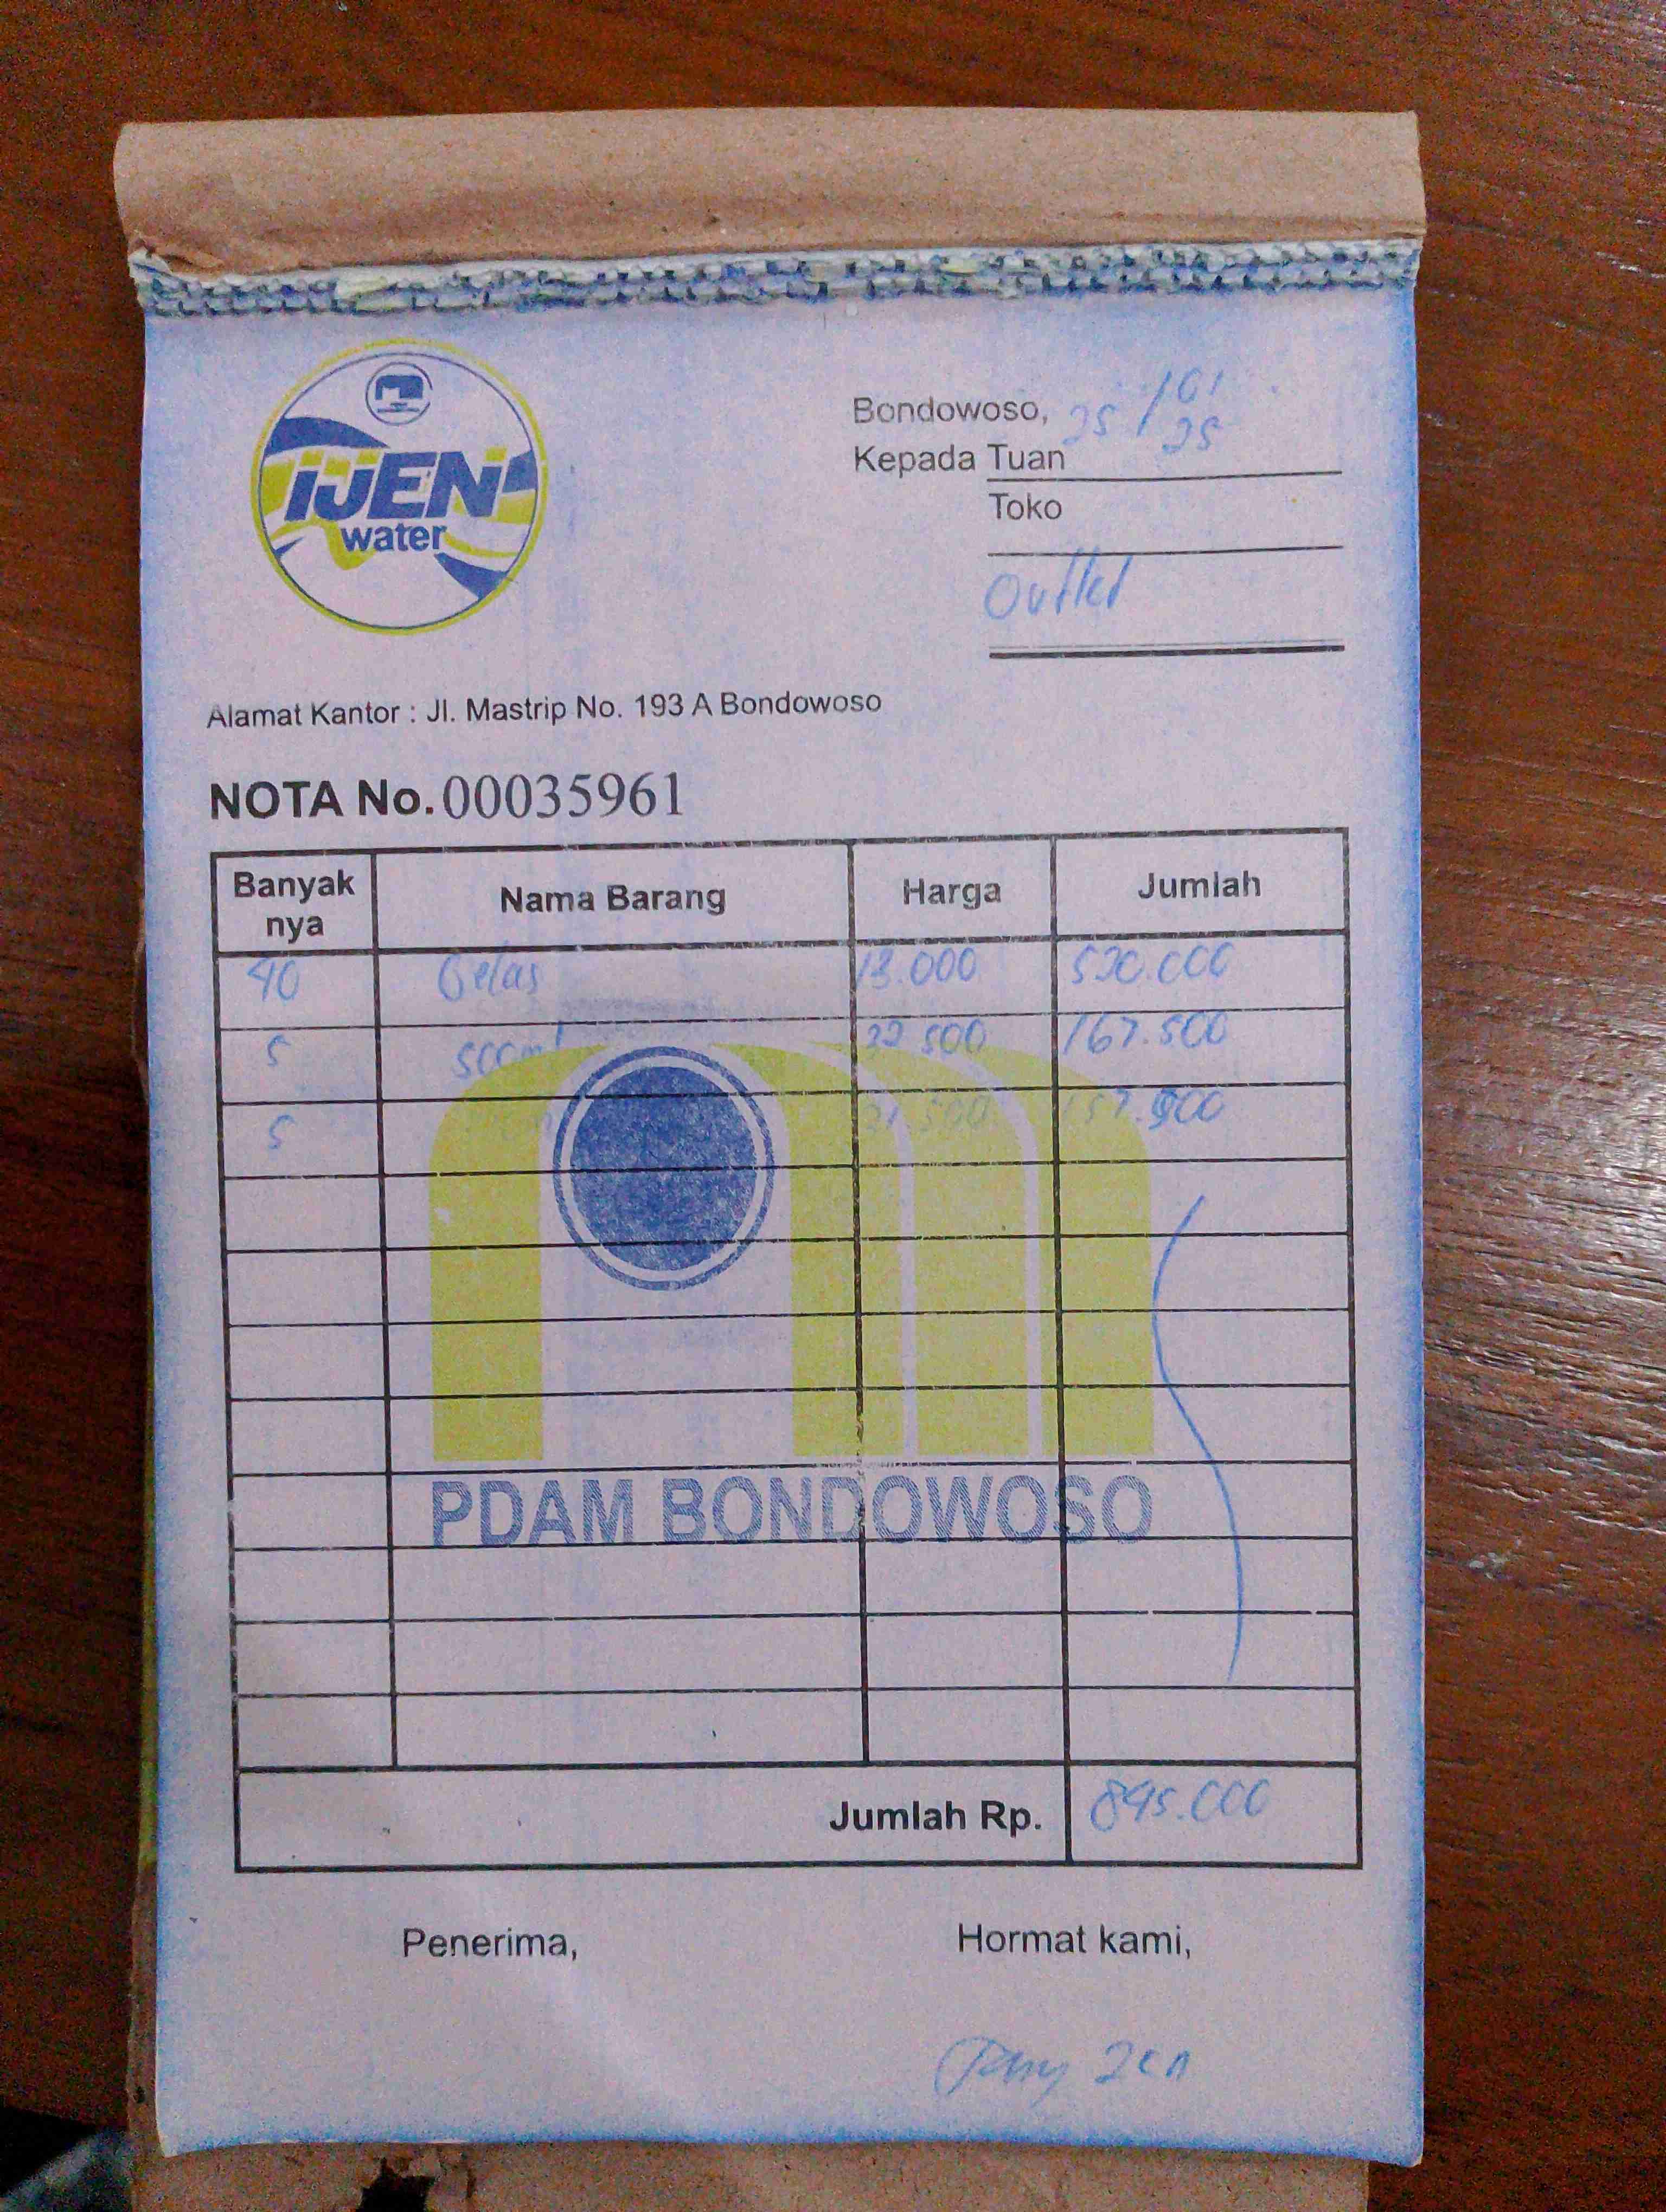 iJEN
water
Bondowoso, 25 / 01 25
Kepada Tuan
Toko
Outlet
Alamat Kantor : Jl. Mastrip No. 193 A Bondowoso
NOTA No. 00035961
Banyak nya Nama Barang Harga Jumlah
40 Gelas 13.000 520.000
5 500ml 32 500 167.500
5 31.500 157.500
PDAM BONDOWOSO
Jumlah Rp. 845.000
Penerima, Hormat kami,